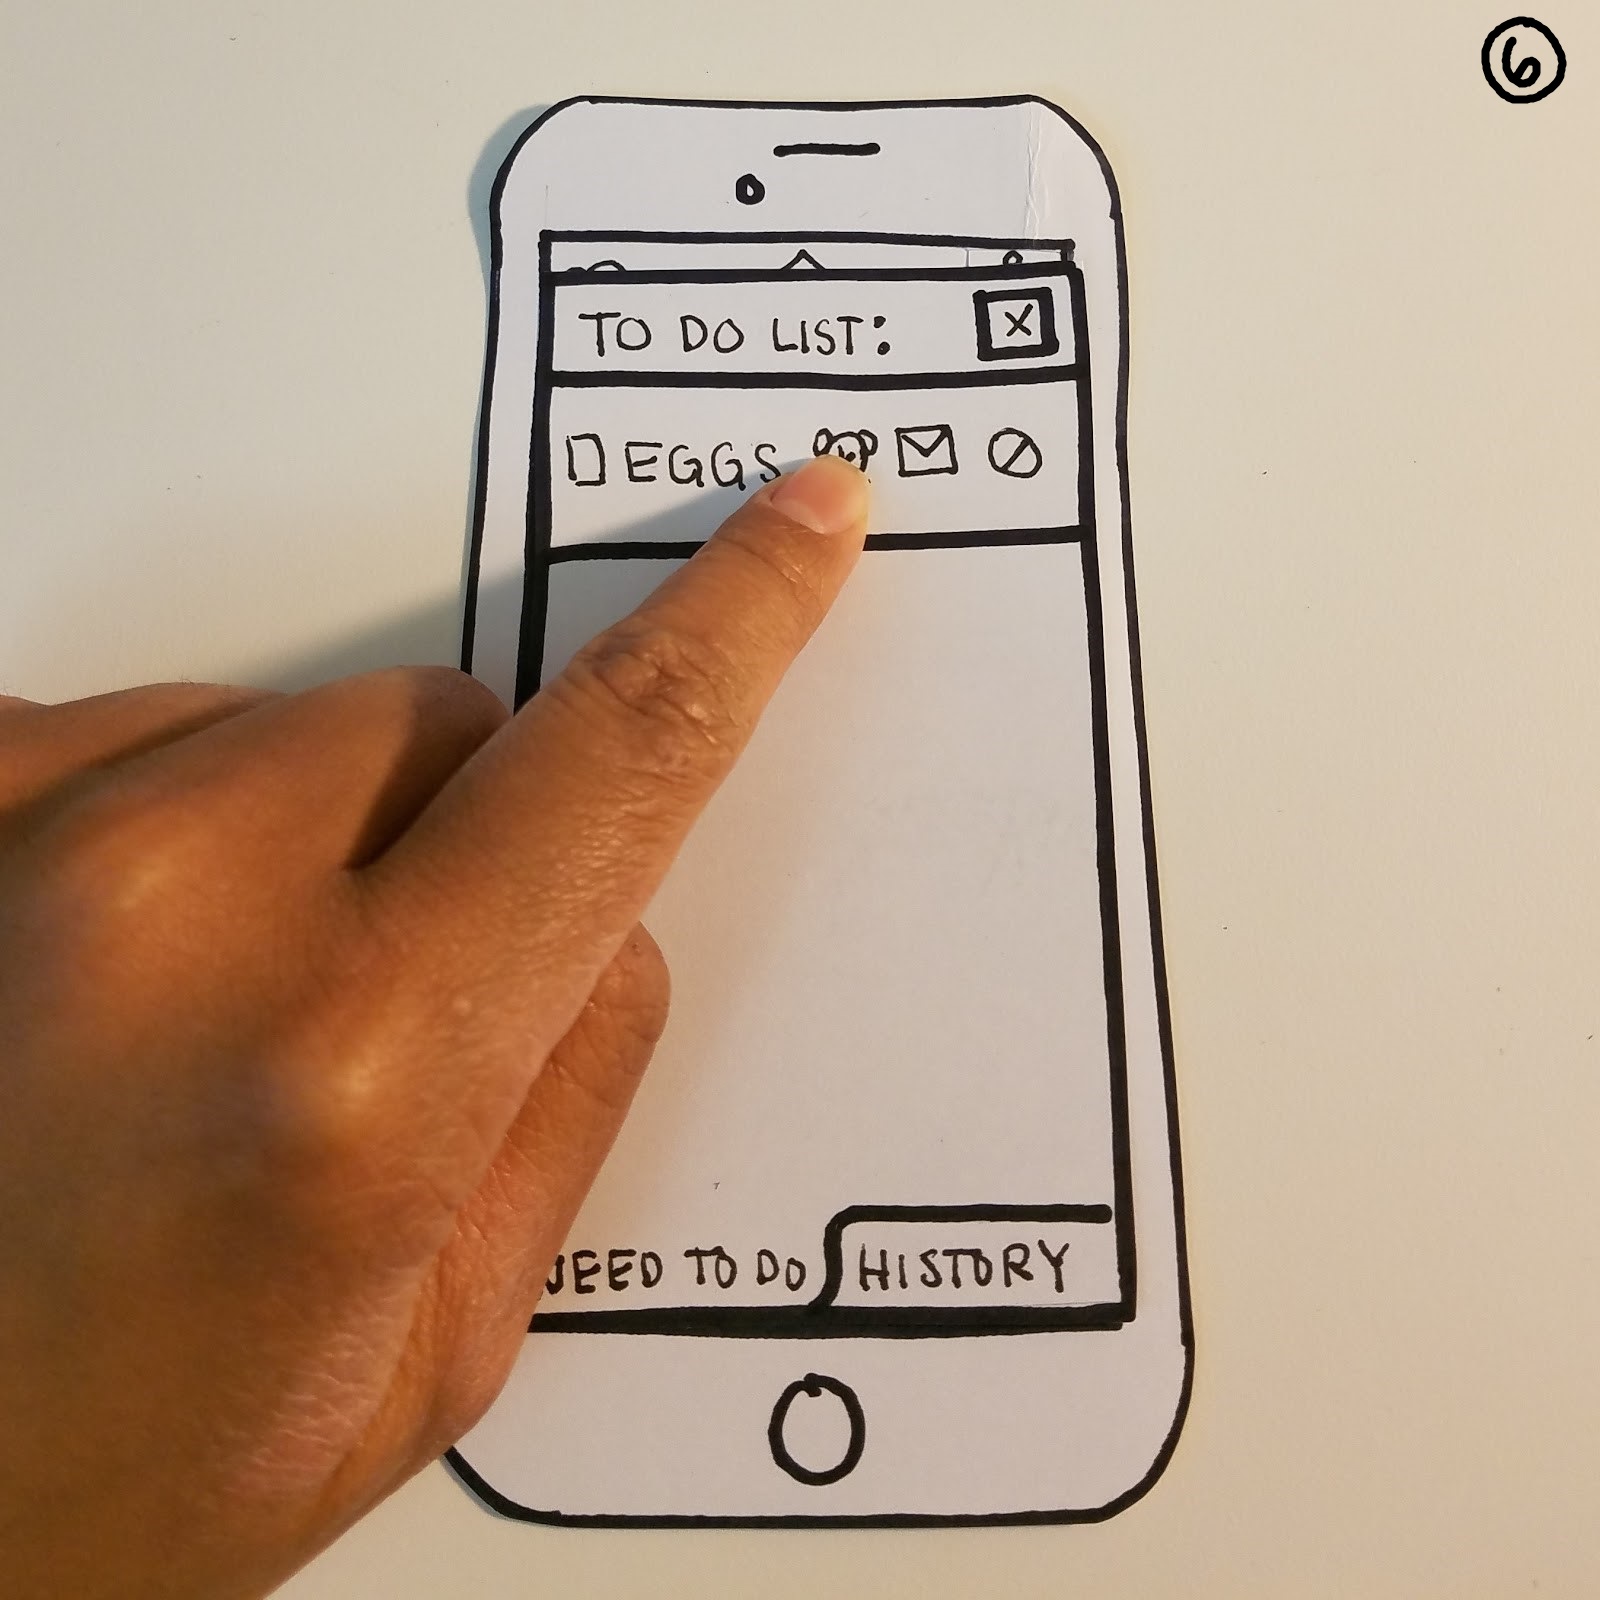 6
TO DO LIST: X
EGGS
NEED TO DO HISTORY